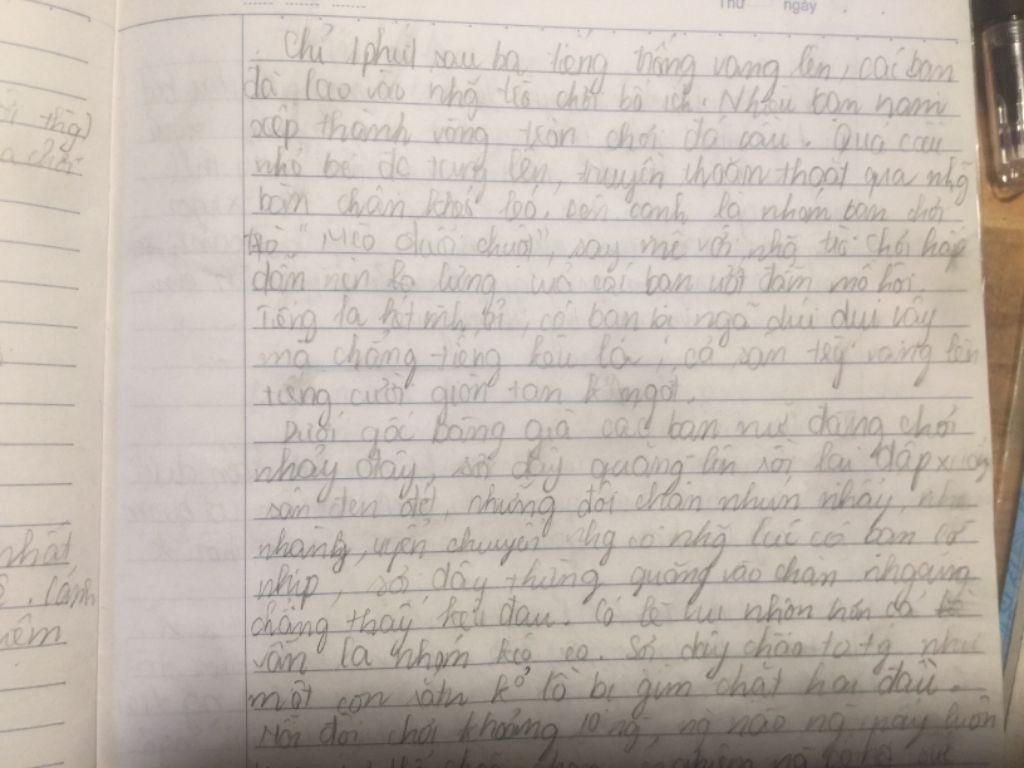 Thứ ngày
Chỉ 1 phút sau ba tiếng trống vang lên, các bạn
đã lao vào nhg̃ trò chơi bổ ích. Nhiều bạn nam
xếp thành vòng tròn chơi đá cầu. Quả cầu
nhỏ bé đc tung lên, truyền thoăn thoắt qua nhg̃
bàn chân khéo léo, bên cạnh là nhóm bạn chơi
trò "Mèo đuổi chuột", say mê với nhg̃ trò chơi hấp
dẫn nên ko lưng các bạn ướt đẫm mồ hôi.
Tiếng la hét có bạn bị ngã dúi dụi vậy
mà chẳng tiếng kêu la, cả sân trg vang lên
tiếng cười giòn tan k ngớt.
Dưới gốc bàng già các bạn nữ đang chơi
nhảy dây, sợi dây quăng lên rồi lại đập xuống
sân đen đét, những đôi chân nhún nhảy,
nhàng, uyển chuyển nhg có nhg̃ lúc có bạn lỡ
nhịp, sợi dây thừng quăng vào chân nhưng
chẳng thấy kêu đau. Có lẽ vui nhộn hơn cả
vẫn là nhóm kéo co. Sợi dây chão to tg như
một con rắn k° lồ bị gim chặt hai đầu.
Mỗi đội chơi khoảng 10 ng, ng nào ng nấy luôn
nhất
cánh